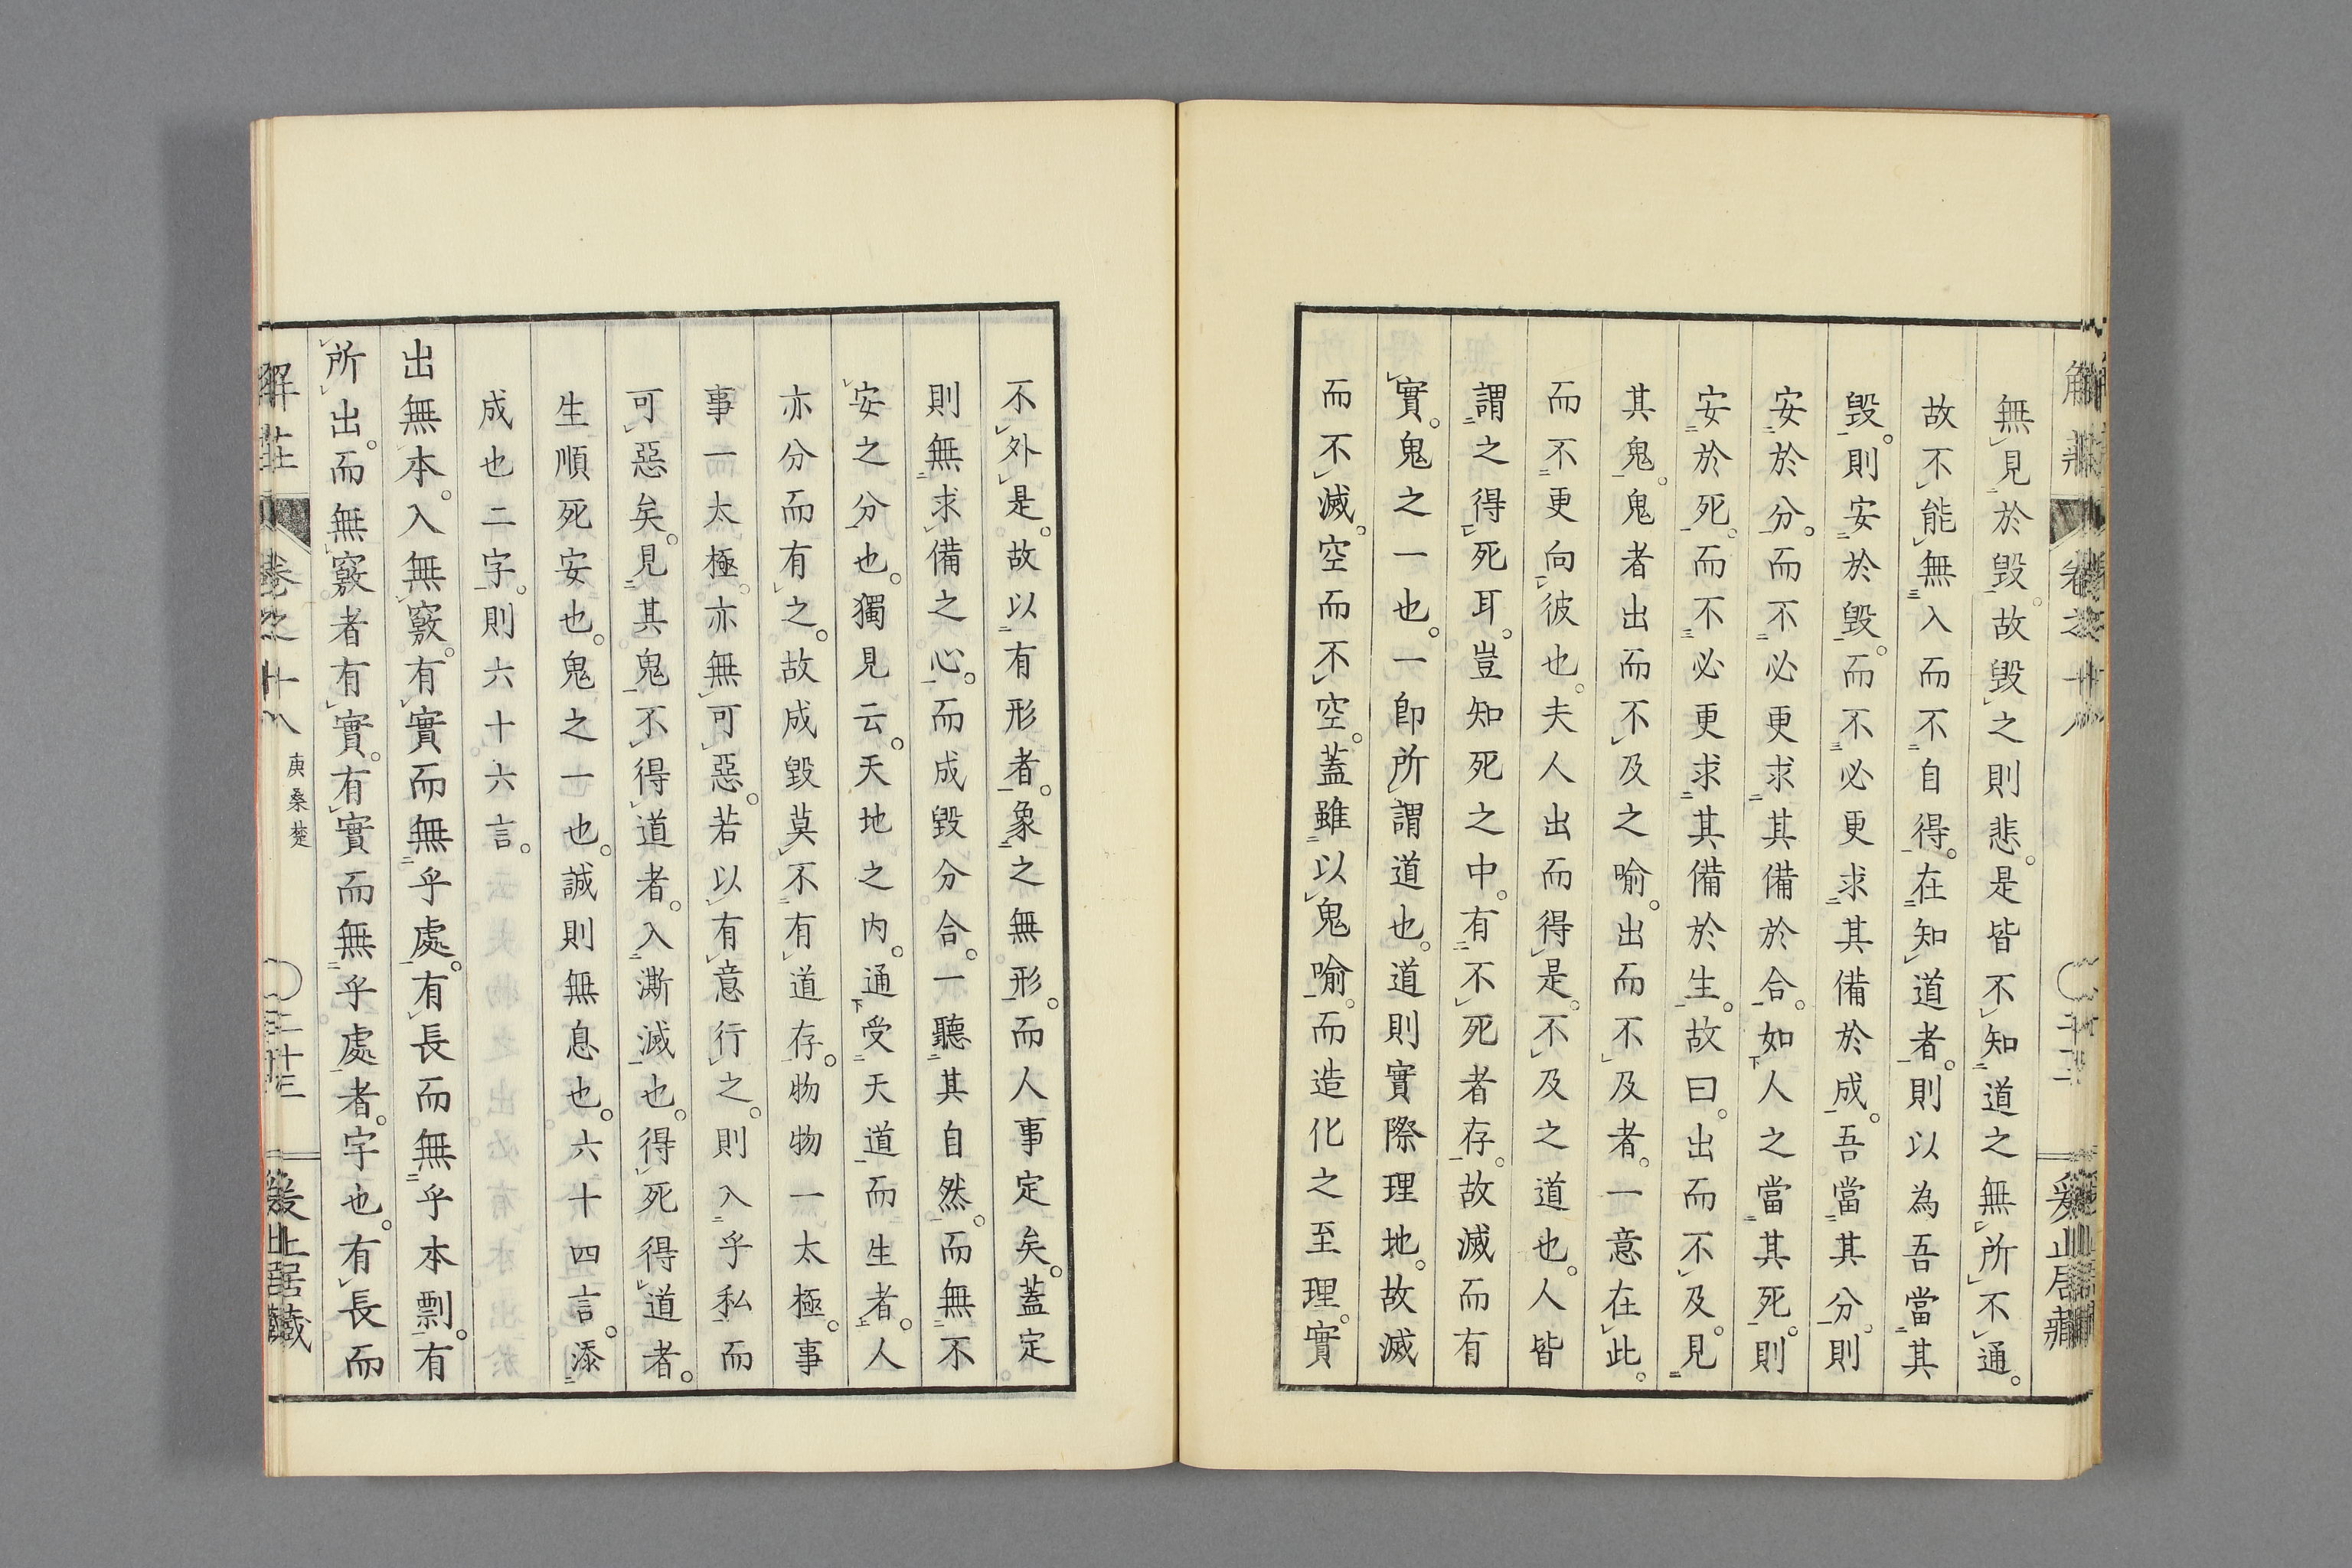 無見於毀。故毀之則悲。是皆不知道之無所不通。
故不能無入而不自得。在知道者。則以為吾當其
毀。則安於毀。而不必更求其備於成。吾當其分。則
安於分。而不必更求其備於合。如人之當其死。則
安於死。而不必更求其備於生。故曰。出而不及。見
其鬼。鬼者出而不及之喻。出而不及者。一意在此。
而不更向彼也。夫人出而得是。不及之道也。人皆
謂之得死耳。豈知死之中。有不死者存。故滅而有
實。鬼之一也。一卽所謂道也。道則實際理地。故滅
而不滅。空而不空。蓋雖以鬼喻。而造化之至理。實
不外是。故以有形者。象之無形。而人事定矣。蓋定
則無求備之心。而成毀分合。一聽其自然。而無不
安之分也。獨見云。天地之內。通受天道而生者。人
亦分而有之。故成毀莫不有道存。物物一太極。事
事一太極。亦無可惡。若以有意行之。則入乎私而
可惡矣。見其鬼不得道者。入澌滅也。得死得道者。
生順死安也。鬼之一也。誠則無息也。六十四言。添
成也二字。則六十六言。
出無本。入無竅。有實而無乎處。有長而無乎本剽。有
所出。而無竅者有實。有實而無乎處者。宇也。有長而
解莊
卷之十八
庚桑楚